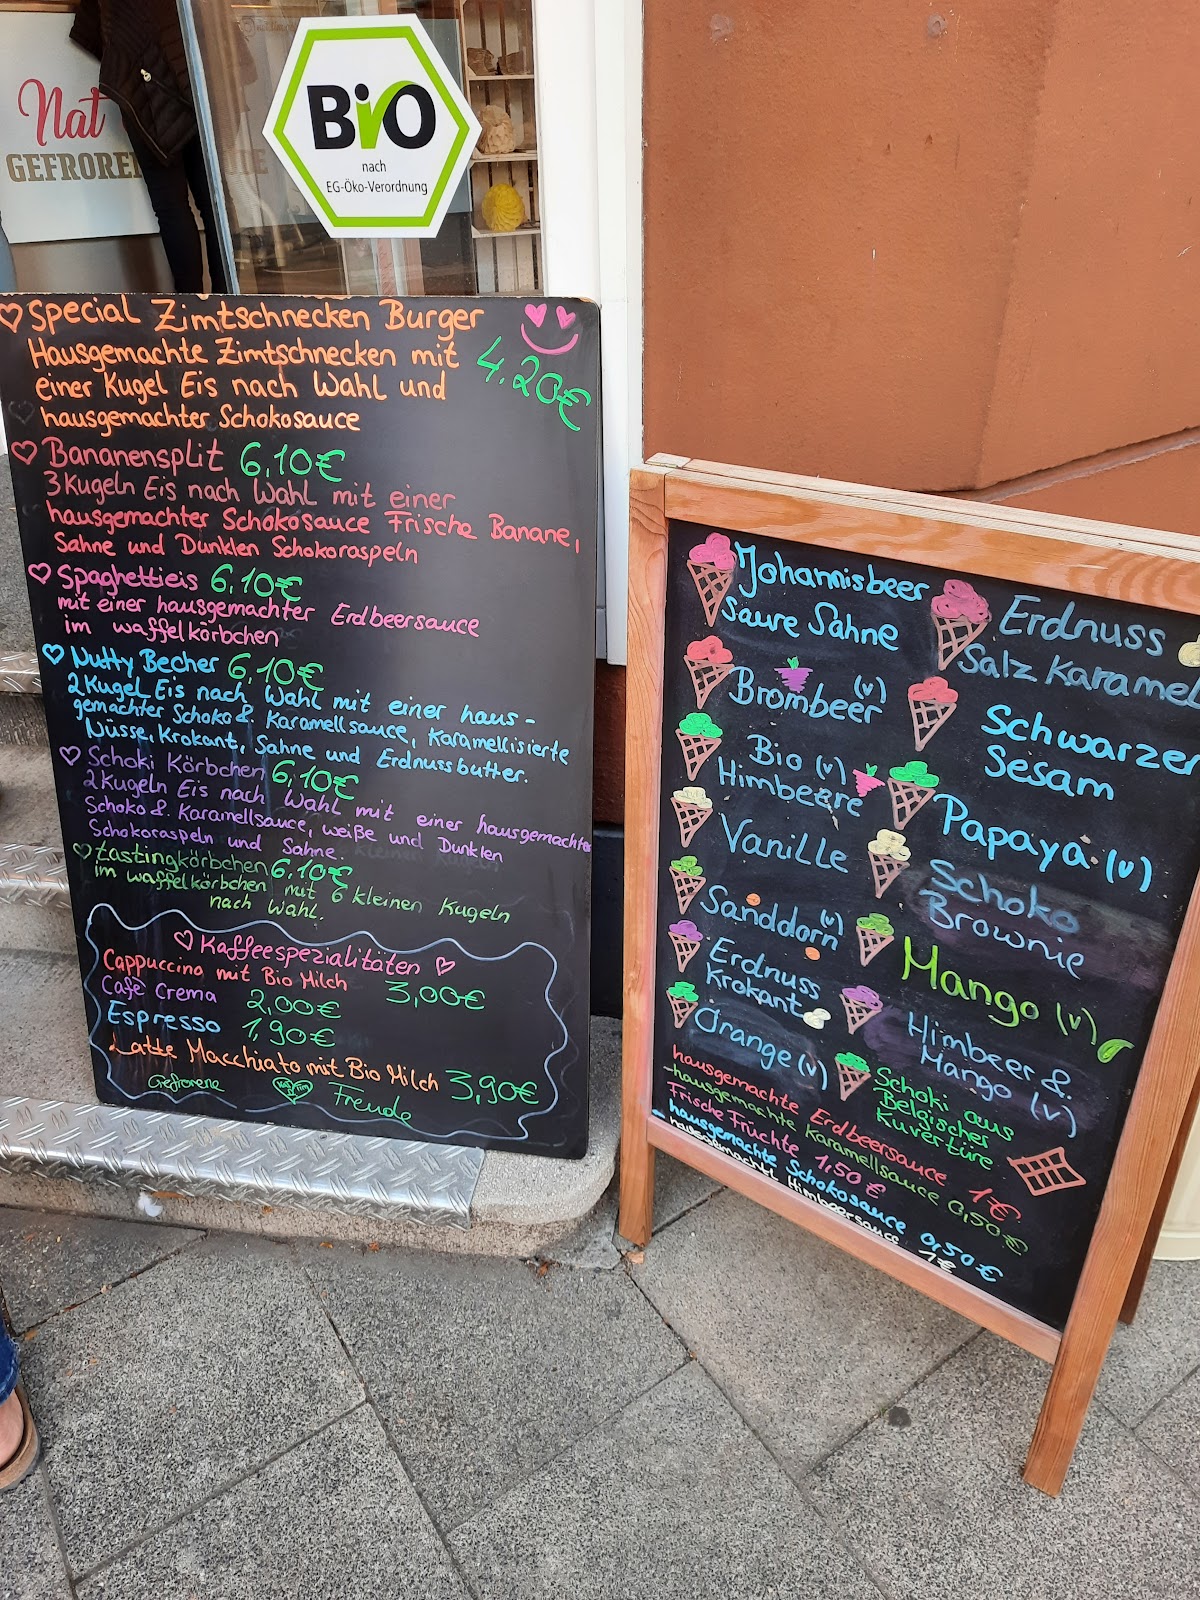 Nat
GEFROREN
BiO
nach
EG-Öko-Verordnung
Special Zimtschnecken Burger
Hausgemachte Zimtschnecken mit
4.20€
einer Kugel Eis nach Wahl und
hausgemachter Schokosauce
Bananensplit 6,10€
3 Kugeln Eis nach Wahl mit einer
hausgemachter Schokosauce Frische Banane,
Sahne und Dunklen Schokoraspeln
Spaghettieis 6,10€
mit einer hausgemachter Erdbeersauce
im waffelkörbchen
Nutty Becher 6,10€
2 Kugel Eis nach Wahl mit einer haus-
gemachter Schoko &. Karamellsauce, Karamellisierte
Nüsse, Krokant, Sahne und Erdnussbutter.
Schoki Körbchen 6,10€
2 Kugeln Eis nach Wahl mit einer hausgemachter
Schoko &. Karamellsauce, weiße und Dunklen
Schokoraspeln und Sahne.
tastingkörbchen 6,10€
im waffelkörbchen mit 6 kleinen Kugeln
nach Wahl.
Kaffeespezialitäten
Cappuccino mit Bio Milch 3,00€
Cafè Crema 2,00€
Espresso 1,90€
Latte Macchiato mit Bio Milch 3,90€
Gefrorene Freude
Johannisbeer
saure Sahne
Brombeer (v)
Bio (v)
Himbeere
Vanille
Sanddorn (v)
Erdnuss
Krokant
Orange (v)
Erdnuss
Salz Karamel
Schwarzer
Sesam
Papaya (v)
Schoko
Brownie
Mango (v)
Himbeer &.
Mango (v)
Schoki aus
Belgischer
Kuvertüre
hausgemachte Erdbeersauce 1€
hausgemachte Karamellsauce 0,50€
Frische Früchte 1,50€
hausgemachte Schokosauce 0,50€
hausgemacht Himbeersauce 1€